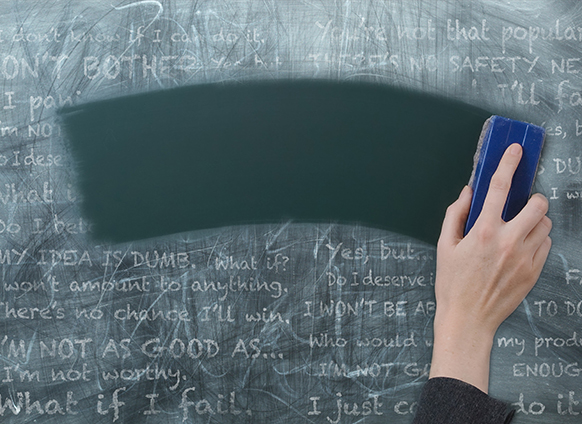 I don't know if I can do it.
Yes, but...
You're not that popular
DON'T BOTHER
THERE'S NO SAFETY NE
I pani
I'll fa
I'm NOT
yes, b
Do I dese
What i
Do I be
MY IDEA IS DUMB
What if?
I won't amount to anything.
There's no chance I'll win.
I'M NOT AS GOOD AS...
I'm not worthy.
What if I fail.
Yes, but...
Do I deserve i
I WON'T BE AP
TO DO
Who would
my produ
I'M NOT GO
ENOUG
I just ca
do it